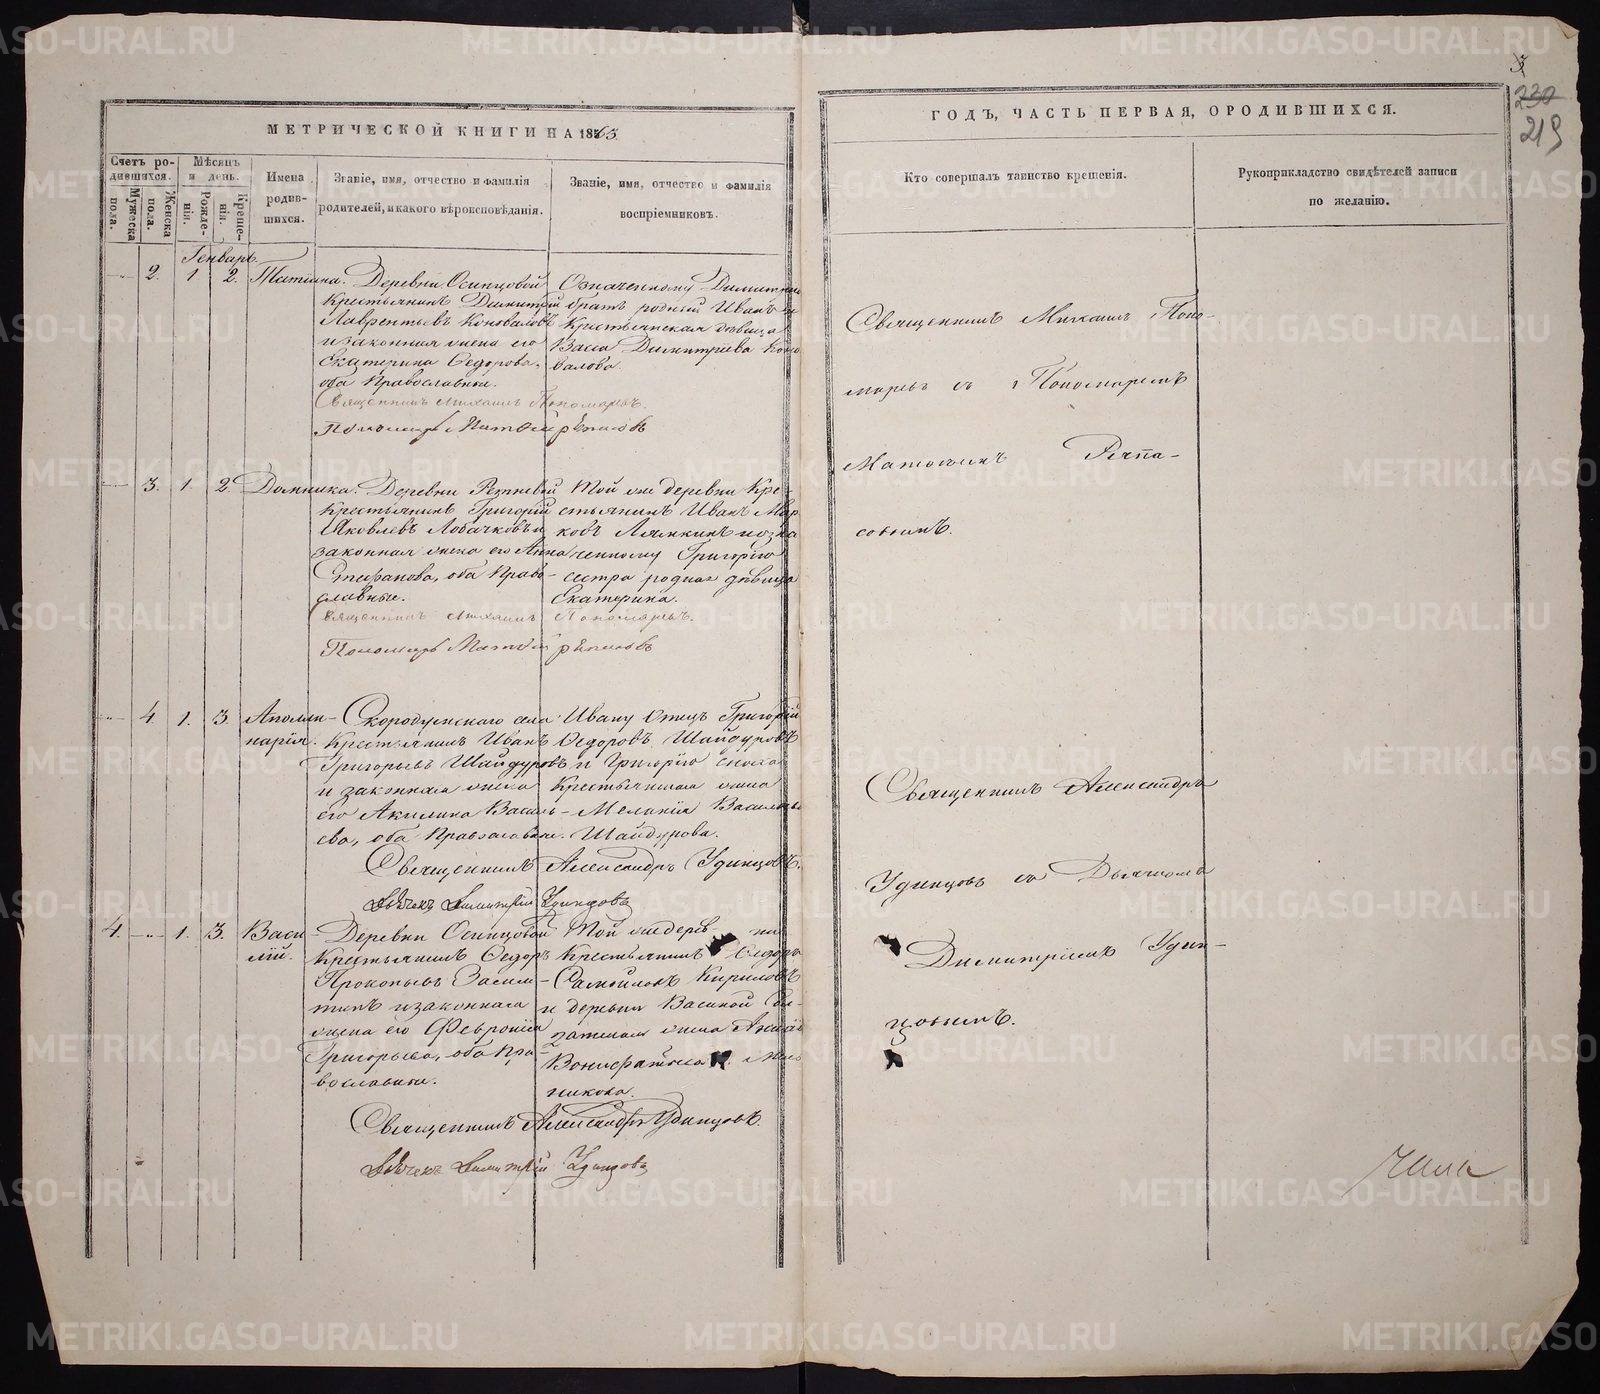 МЕТРИЧЕСКОЙ КНИГИ НА 1863
ГОДЪ, ЧАСТЬ ПЕРВАЯ, О РОДИВШИХСЯ.
219
Счетъ родившихся.
Мужеска пола.
Женска пола.
Мѣсяцъ и день.
Рожденія.
Крещенія.
Имена родившихся.
Званіе, имя, отчество и фамилія родителей, и какого вѣроисповѣданія.
Званіе, имя, отчество и фамилія воспріемниковъ.
Кто совершалъ таинство крещенія.
Рукоприкладство свидѣтелей записи по желанію.
Генварь.
2. 1 2. Татіана.
Деревни Осинцовой
Крестьянинъ Димитрій
Лаврентьевъ Коноваловъ
и законная жена его
Екатерина Ѳедорова,
оба Православные.
Означенному Димитрію
братъ родный Иванъ и
Крестьянская дѣвица
Васса Димитріева Коно
валова.
Священникъ Михаилъ Пономаревъ.
Пономарь Матѳей
Священникъ Михаилъ Поно-
маревъ съ Пономаремъ
Матѳеемъ
3. 1. 2. Домника.
Деревни
Крестьянинъ Григорій
Яковлевъ Лобачковъ и
законная жена его Анна
Стефанова, оба Право-
славные.
Той же деревни Кре-
стьянинъ Иванъ
ковъ Лямкинъ и озна
ченному Григорію
сестра родная дѣвица
Екатерина.
Священникъ Михаилъ Пономаревъ.
Пономарь Матѳей
4. 1. 3. Аполли-
нарія.
Скородумскаго села
Крестьянинъ Иванъ
Григорьевъ Шайдуровъ
и законная жена
его Акилина Василь-
ева, оба Православные.
Ивану отецъ Григорій
Ѳедоровъ Шайдуровъ
и Григорію сноха
Крестьянская жена
Меланія Васильева
Шайдурова.
Священникъ Александръ Удинцовъ.
Дьячекъ Димитрій Удинцовъ
Священникъ Александръ
Удинцовъ съ Дьячкомъ
Димитріемъ Удин-
цовымъ.
4. 1. 3. Васи-
лій.
Деревни Осинцовой
Крестьянинъ Ѳедоръ
Прокопьевъ
и законная
жена его Февронія
Григорьева, оба Пра-
вославные.
Той же деревни
Крестьянинъ Ѳедоръ
Самойловъ Кириловъ
и деревни
жена
никова.
Священникъ Александръ Удинцовъ.
Дьячекъ Димитрій Удинцовъ
METRIKI.GASO-URAL.RU